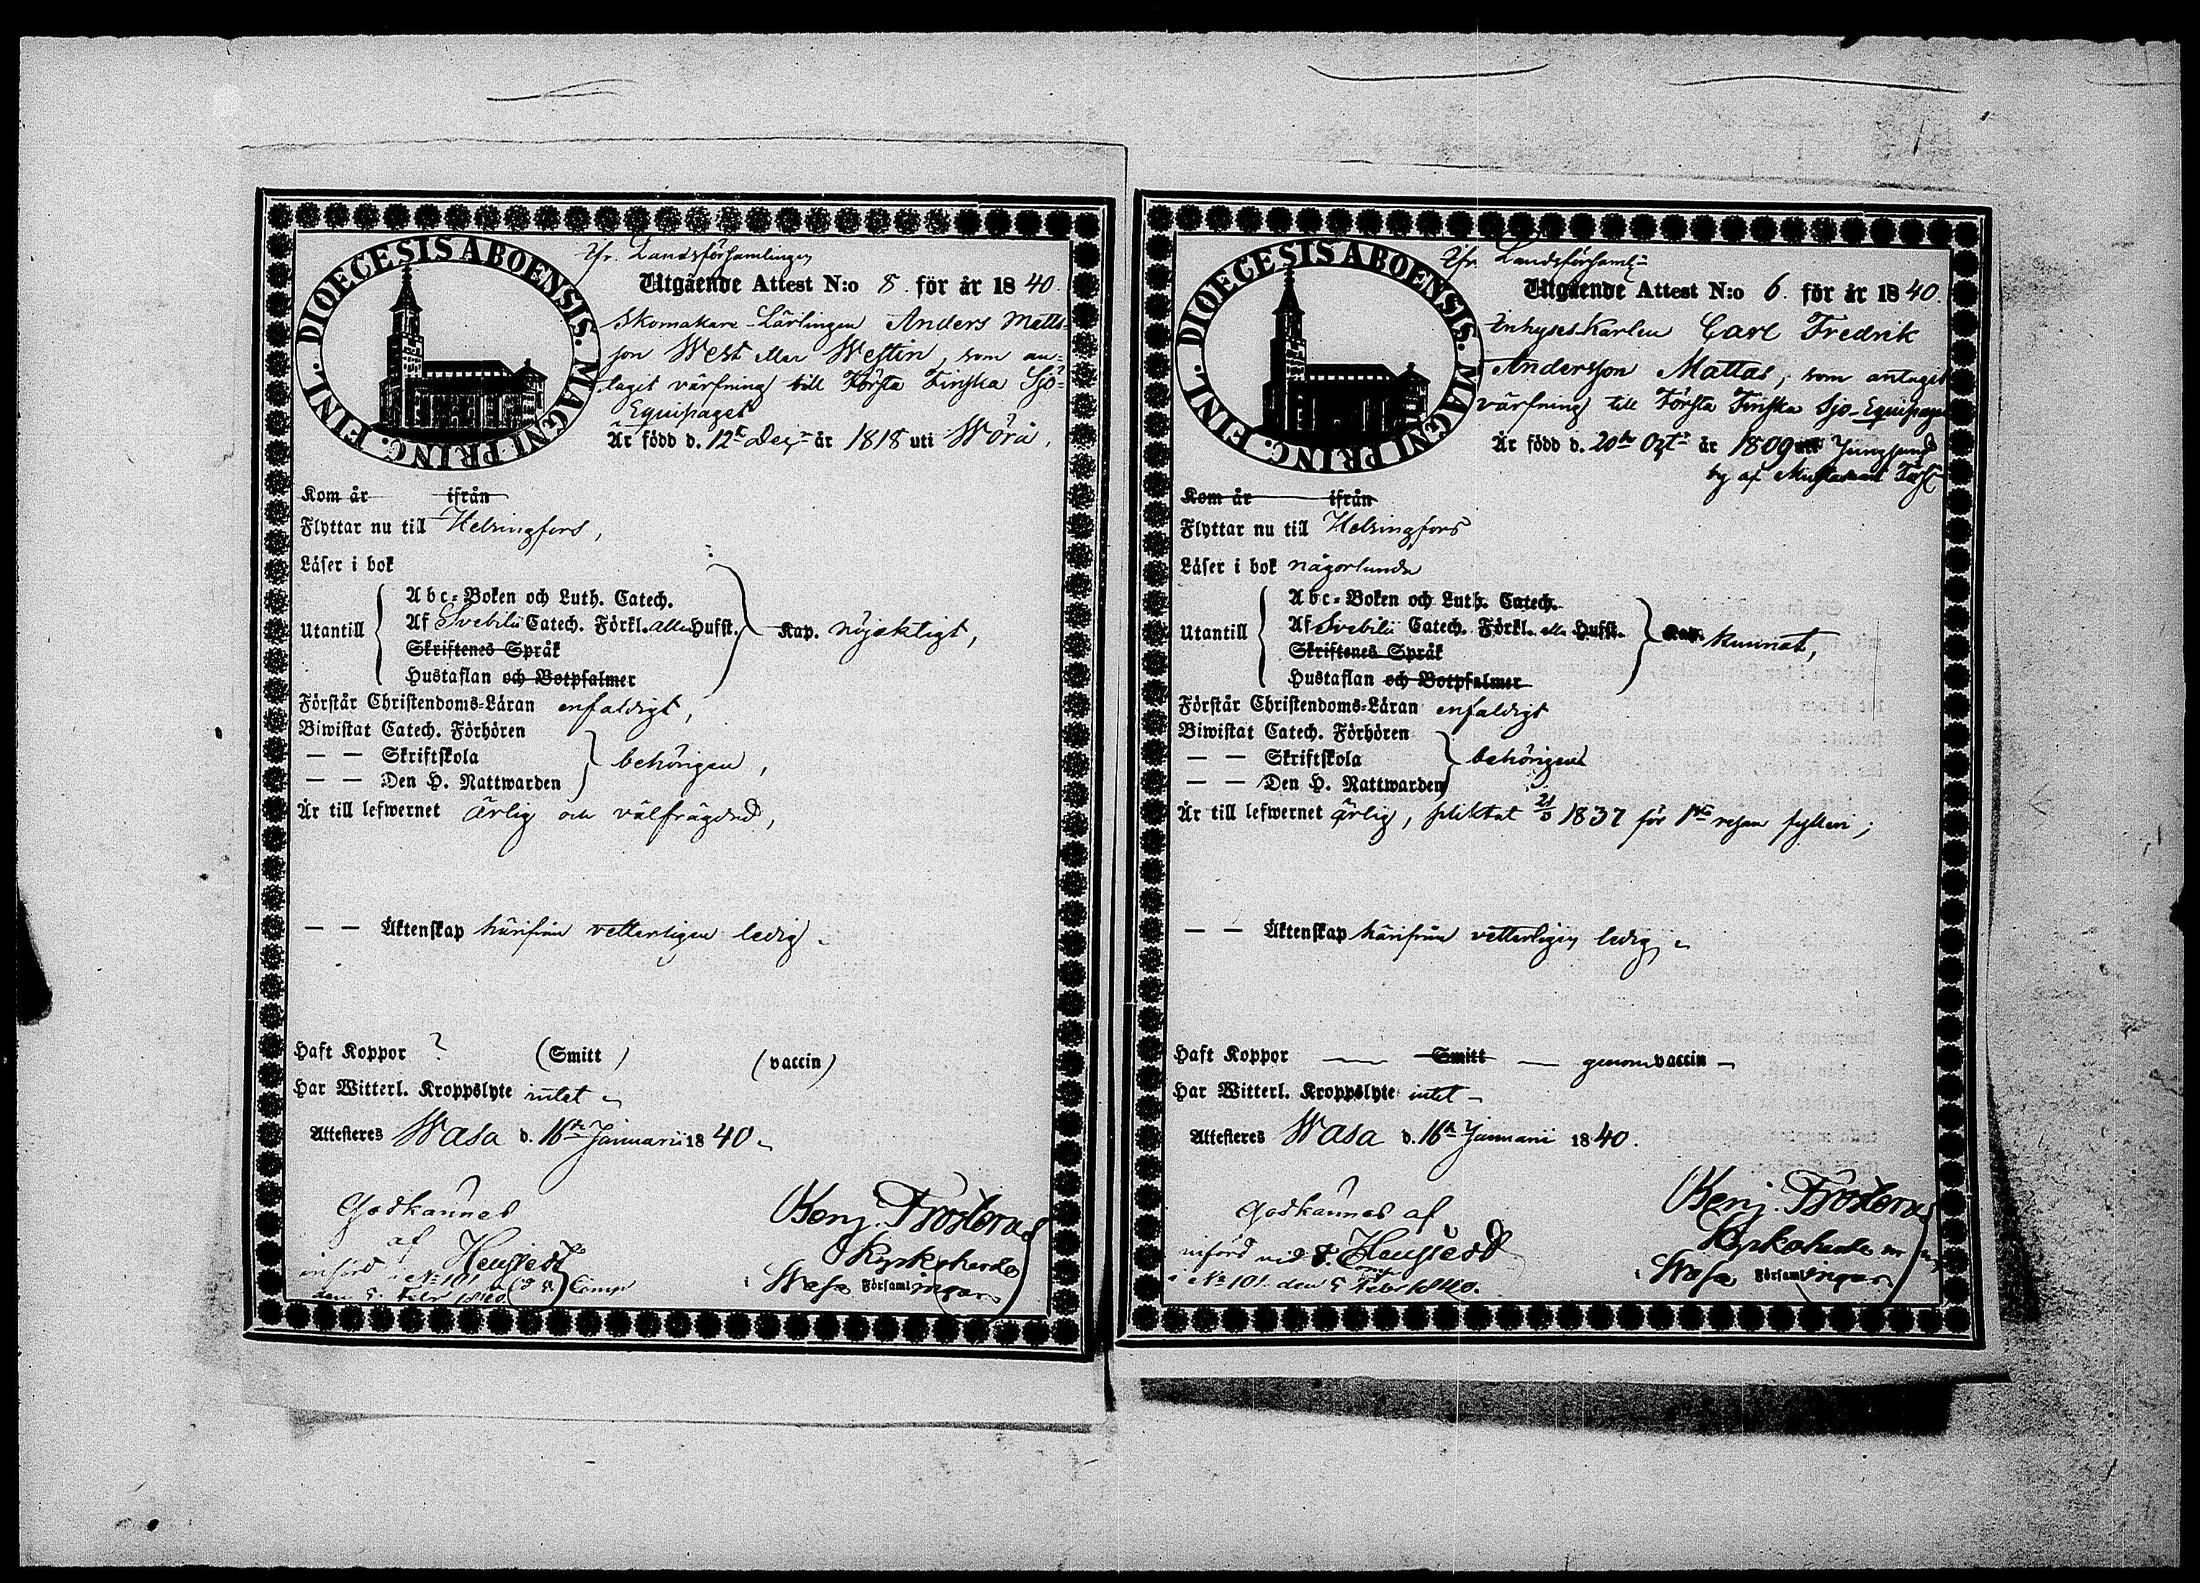 DIOECESIS ABOENSIS. MAGNI PRINC. FINL.
Ifr. Landsförsamlingen
Utgående Attest N:o 8. för år 1840.
Skomakare-Lärlingen Anders Matts-
son West eller Westin, som an-
tagit värfning till Första Finska Sjö-
Equipaget
Är född d. 12te Dec. år 1818 uti Wörå.
Kom år ifrån
Flyttar nu till Helsingfors,
Läser i bok
Abc-Boken och Luth. Catech.
Utantill Af Svebilii Catech. Förkl. eller Hufst. Kap. nöjaktigt,
Skriftenes Språk
Hustaflan och Botpsalmer
Förstår Christendoms-Läran enfaldigt,
Biwistat Catech. Förhören
— — Skriftskola behörigen,
— — Den H. Nattwarden
Är till lefwernet ärlig och välfrägdad,
— — Äktenskap härifrån vetterligen ledig.
Haft Koppor ? (Smitt) (vaccin)
Har Witterl. Kroppslyte intet
Attesteres Wasa d. 16de Januarii 1840
Godkännes
af
Benj. Frosterus
Kyrkoherde
införd N:o 101
den 5. Febr 1840. Comp
i Wasa Församlingar
DIOECESIS ABOENSIS. MAGNI PRINC. FINL.
Ifr. Landsförsaml:
Utgående Attest N:o 6. för år 1840.
Inhyses Karlen Carl Fredrik
Andersson Mattas, som antagit
värfning till Första Finska Sjö-Equipaget
Är född d. 20de Oct: år 1809 uti
by af Mustasaari
Kom år ifrån
Flyttar nu till Helsingfors
Läser i bok någorlunda
Abc-Boken och Luth. Catech.
Utantill Af Svebilii Catech. Förkl. eller Hufst. Kap. kunnat,
Skriftenes Språk
Hustaflan och Botpsalmer
Förstår Christendoms-Läran enfaldigt
Biwistat Catech. Förhören
— — Skriftskola behörigen
— — Den H. Nattwarden
Är till lefwernet ärlig, pliktat 1837 för 1sta resan fylleri;
— — Äktenskap härifrån vetterligen ledig
Haft Koppor — Smitt — genom vaccin —
Har Witterl. Kroppslyte intet —
Attesteres Wasa d. 16de Januarii 1840.
Godkännes af
Benj. Frosterus
Kyrkoherde
införd vid
N:o 101. den 5 Febr 1840.
i Wasa Församlingar